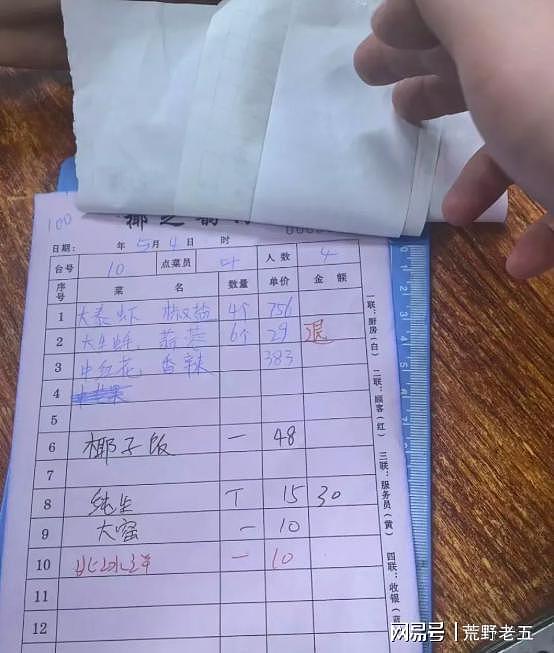 100
椰之韵
日期： 年 5月 4日 时
台号 10 点菜员 叶 人数 4
序号 菜名 数量 单价 金额
1 大泰虾 椒盐 4个 756
2 大生蚝 蒜蓉 6个 29 退
3 中红花 香辣 383
4
5
6 椰子饭 一 48
7
8 纯生 T 15 30
9 大窑 一 10
10 北冰洋 一 10
11
12
一联：厨房（白） 二联：顾客（红） 三联：服务员（黄） 四联：收银（蓝
网易号 | 荒野老五